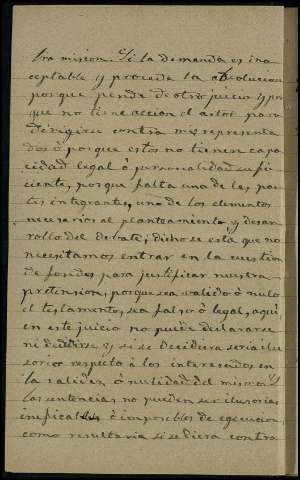 tra mision. Y si la demanda es ina
ceptable y proceda la absolucion
porque pende de otro juicio y por
que no tiene accion el actor para
dirigirse contra mis representa
dos ó porque estos no tienen capa
cidad legal ó personalidad sufi
ciente, porque falta una de las par
tes integrantes, uno de los elementos
necesarios al planteamiento y desar
rollo del debate; dicho se esta que no
necesitamos entrar en la cuestion
de fondo para justificar nuestra
pretension, porque sea valido ó nulo
el testamento, sea falso ó legal, aquí,
en este juicio no puede declararse
ni decidirse y si se decidiera seria ilu
sorio respecto á los interesados en
la validez ó nulidad del mismo. Y
las sentencias no pueden ser ilusorias
ineficaces ó imposibles de egecucion,
como resultaria si se diera contra